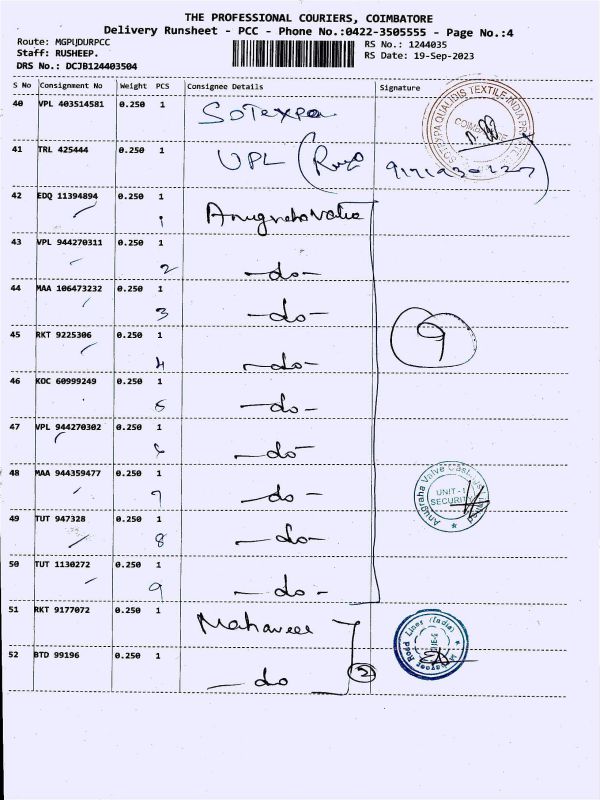 THE PROFESSIONAL COURIERS, COIMBATORE
Delivery Runsheet - PCC - Phone No.:0422-3505555 - Page No.:4
Route: MGPUDURPCC
RS No.: 1244035
Staff: RUSHEEP.
RS Date: 19-Sep-2023
DRS No.: DCJB124403504
S No Consignment No Weight PCS Consignee Details Signature
40 VPL 403514581 0.250 1 Sotexpa
41 TRL 425444 0.250 1 UPL
42 EDQ 11394894 0.250 1 Anugraha Valve
1
43 VPL 944270311 0.250 1
2 -do-
44 MAA 106473232 0.250 1
3 -do-
45 RKT 9225306 0.250 1
4 -do-
9
46 KOC 60999249 0.250 1
5 -do-
47 VPL 944270302 0.250 1
6 -do-
48 MAA 944359477 0.250 1
7 -do-
Anugraha Valve Castings Limited
UNIT-1
SECURITY
49 TUT 947328 0.250 1
8 -do-
50 TUT 1130272 0.250 1
9 -do-
51 RKT 9177072 0.250 1 Mahaveer
52 BTD 99196 0.250 1
-do 2
SOTEXPA QUALIDIS TEXTILE INDIA